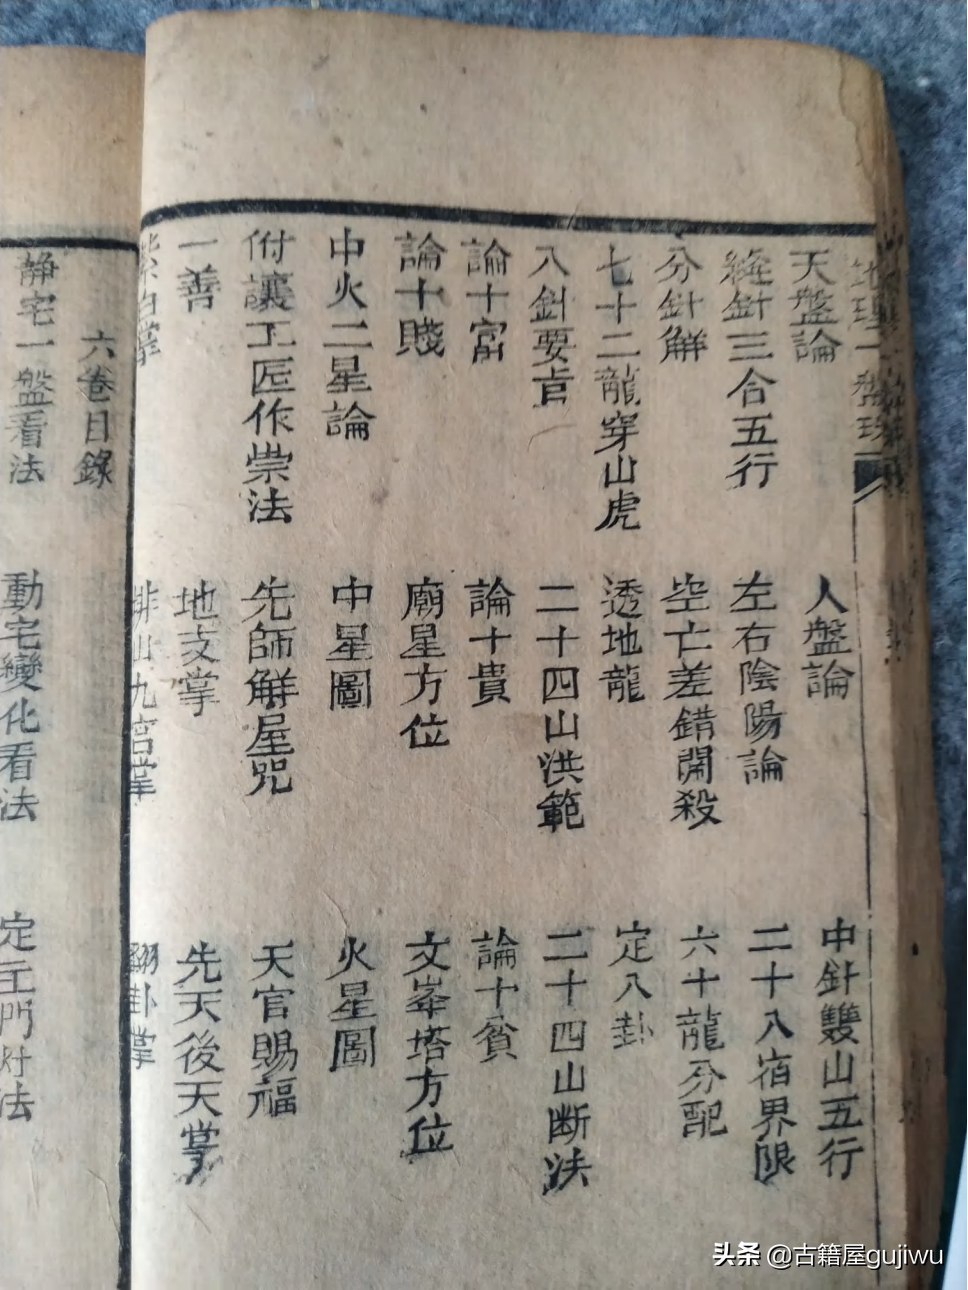 天盤論　人盤論　中針雙山五行
縫針三合五行　左右陰陽論　二十八宿界限
分針解　空亡差錯關殺　六十龍分配
七十二龍穿山虎　透地龍　定八卦
八針要旨　二十四山洪範　二十四山断法
論十富　論十貴　論十貧
論十賤　廟星方位　文峯塔方位
中火二星論　中星圖　火星圖
附讓工匠作祟法　先師解屋咒　天官賜福
一善　地支掌　先天後天掌
排山九宫掌　翻卦掌
六卷目錄
靜宅一盤看法　動宅變化看法　定王門財法
头条 @古籍屋gujiwu